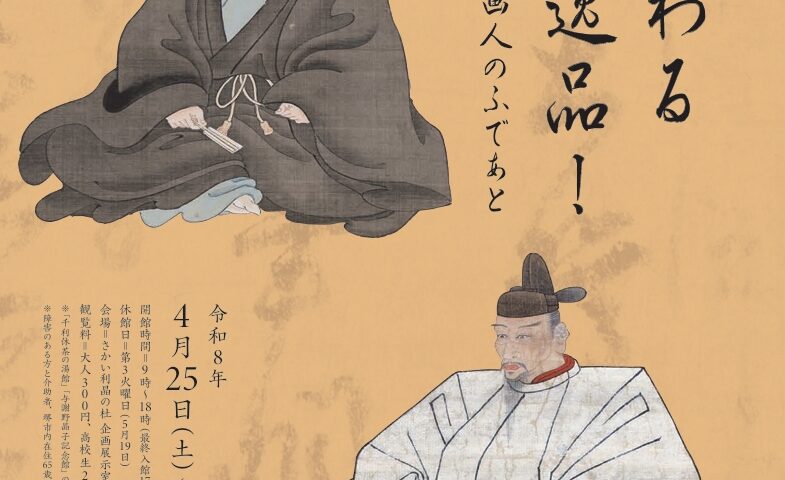 わる
逸品！
画人のふであと
令和8年
4月25日(土)
開館時間＝9時～18時(最終入館17
休館日＝第3火曜日(5月19日)
会場＝さかい利晶の杜 企画展示室
観覧料＝大人300円、高校生2
※「千利休茶の湯館」「与謝野晶子記念館」の
※障害のある方と介助者、堺市内在住65歳